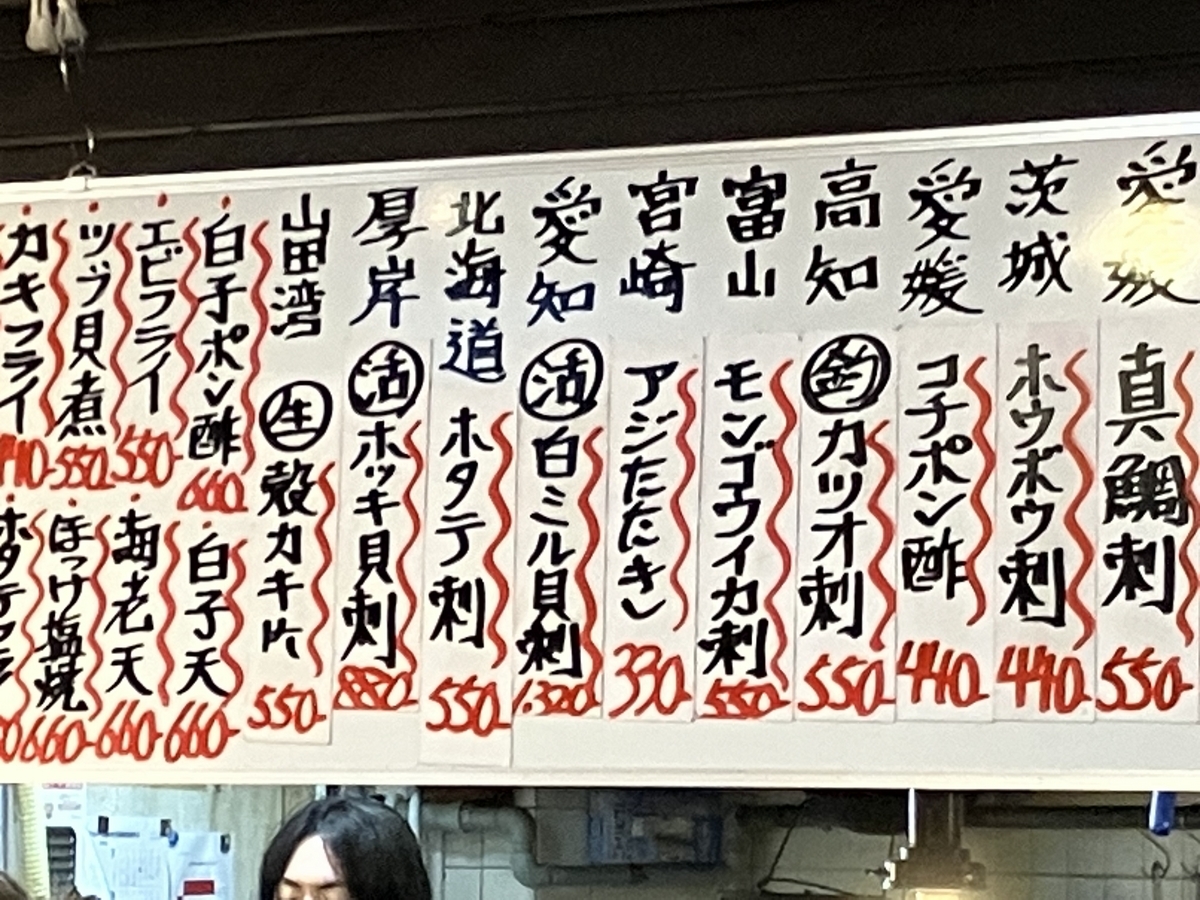 愛媛 真鯛刺 550-
茨城 ホウボウ刺 440-
愛媛 コチポン酢 440-
高知 釣 カツオ刺 550-
富山 モンゴウイカ刺 550-
宮崎 アジたたき 330-
愛知 活 白ミル貝刺 1.320-
北海道 ホタテ刺 550-
厚岸 活 ホッキ貝刺 880-
山田湾 生 殻カキ片 550-
白子ポン酢 660-
エビフライ 550-
ツブ貝煮 550-
カキフライ
白子天 660-
海老天 660-
ほっけ塩焼 660-